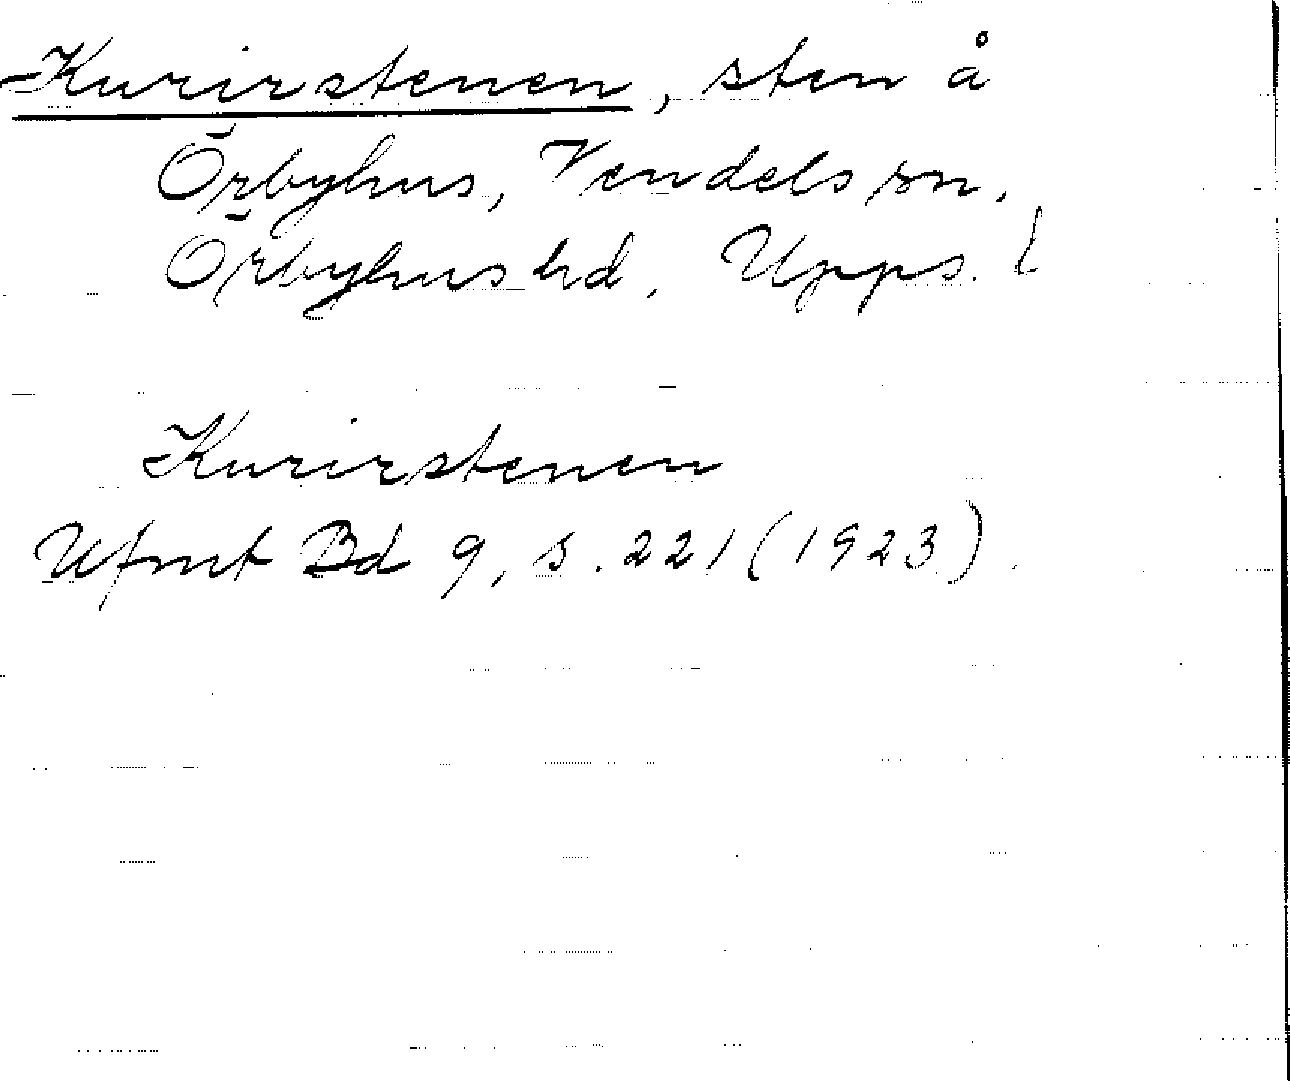 Kurirstenen, sten å
Örbyhus, Vendels sn,
Örbyhus hd, Upps. l
Kurirstenen
Ufmt Bd 9, s. 221 (1923).